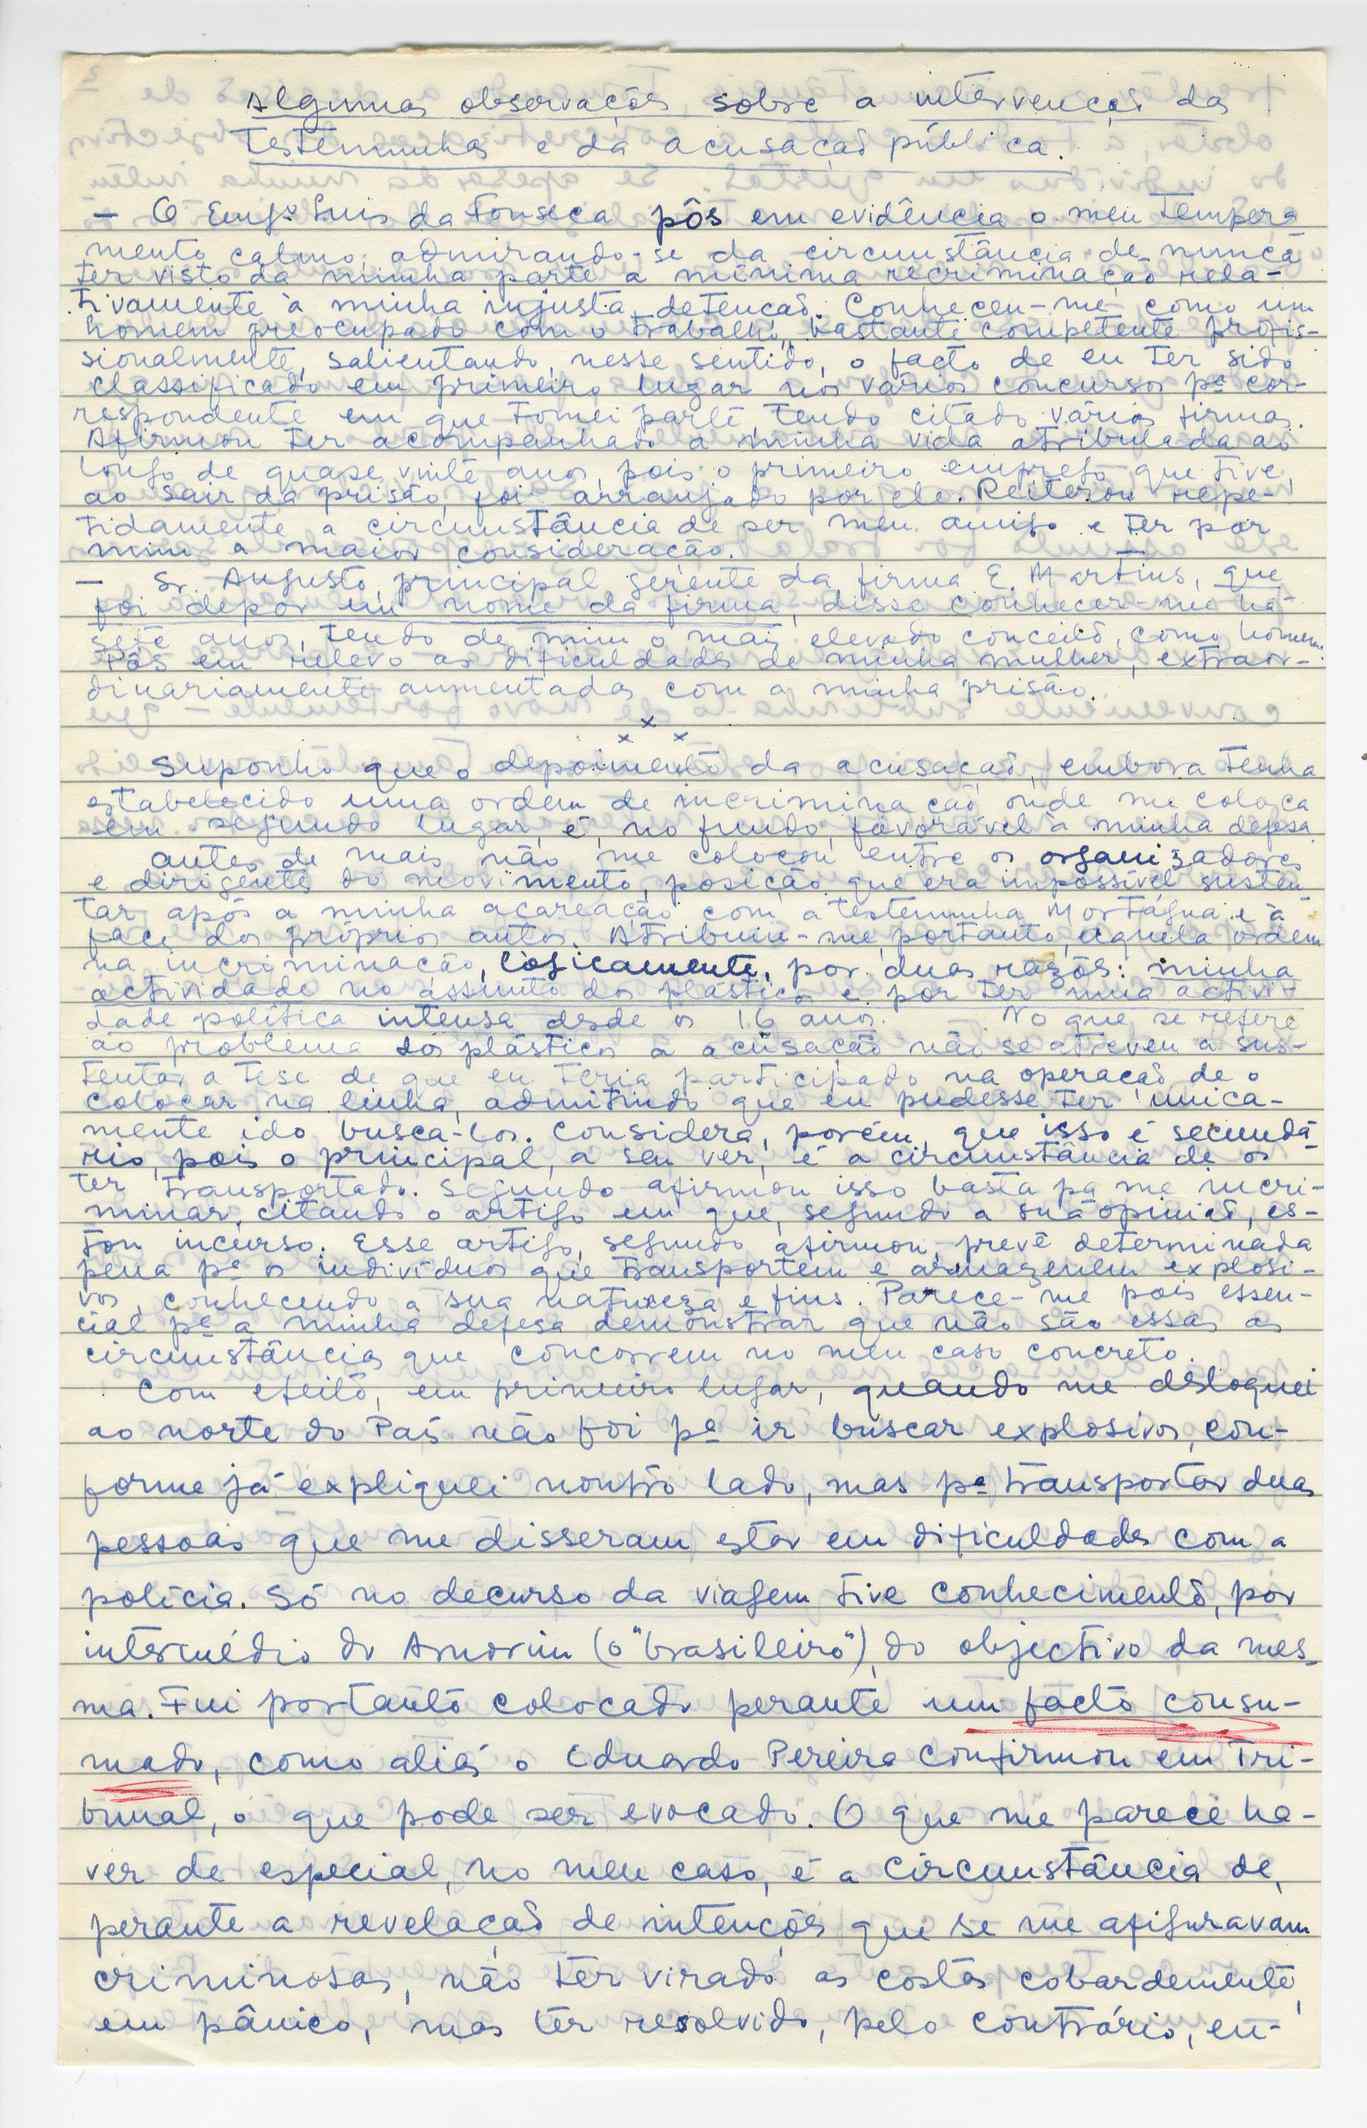 Algumas observações sobre a intervenção das
testemunhas e da acusação pública.
— O Engº Luis da Fonseca pôs em evidência o meu tempera
mento calmo, admirando-se da circunstância de nunca
ter visto da minha parte a mínima recriminação rela-
tivamente à minha injusta detenção. Conheceu-me como um
homem preocupado com o trabalho, bastante competente profis-
sionalmente, salientando, nesse sentido, o facto de eu ter sido
classificado em primeiro lugar nos vários concursos pª cor-
respondente em que tomei parte tendo citado várias firmas.
Afirmou ter acompanhado a minha vida atribulada ao
longo de quase vinte anos, pois o primeiro emprego que tive,
ao sair da prisão, foi arranjado por ele. Reiterou repe-
tidamente a circunstância de ser meu amigo e ter por
mim a maior consideração.
— Sr. Augusto, principal gerente da firma E. Martins, que
foi depor em nome da firma, disse conhecer-me há
sete anos, tendo de mim o mais elevado conceito, como homem.
Pôs em relevo as dificuldades de minha mulher, extraor-
dinariamente aumentadas com a minha prisão.
x x x
Suponho que o depoimento da acusação, embora tenha
estabelecido uma ordem de incriminação onde me coloca
em segundo lugar, é, no fundo, favorável à minha defesa
Antes de mais não me colocou entre os organizadores
e dirigentes do movimento, posição que era impossível susten
tar após a minha acareação com a testemunha Mortágua e à
face dos próprios autos. Atribuiu-me, portanto, aquela ordem
na incriminação, lògicamente, por duas razões: minha
actividade no assunto dos plásticos e por ter uma activi-
dade política intensa desde os 16 anos. — No que se refere
ao problema dos plásticos a acusação não se atreveu a sus-
tentar a tese de que eu teria participado na operação de o
colocar na linha, admitindo que eu pudesse ter unica-
mente ido busca-los. Considera, porém, que isso é secundá
rio, pois o principal, a seu ver, é a circunstância de os
ter transportado. Segundo afirmou isso basta pª me incri-
minar, citando o artigo em que, segundo a sua opinião, es-
tou incurso. Esse artigo, segundo afirmou, prevê determinada
pena pª os indivíduos que transportem e armazenem explosi-
vos, conhecendo a sua natureza e fins. Parece-me pois essen-
cial pª a minha defesa demonstrar que não são essas as
circunstâncias que concorrem no meu caso concreto.
Com efeito, em primeiro lugar, quando me desloquei
ao norte do País não foi pª ir buscar explosivos, con-
forme já expliquei noutro lado, mas pª transportar duas
pessoas que me disseram estar em dificuldades com a
polícia. Só no decurso da viagem tive conhecimento, por
intermédio do Amorim (o "brasileiro"), do objectivo da mes-
ma. Fui portanto colocado perante um facto consu-
mado, como aliás o Eduardo Pereira confirmou em Tri-
bunal, o que pode ser evocado. O que me parece ha-
ver de especial, no meu caso, é a circunstância de,
perante a revelação de intenções que se me afiguravam
criminosas, não ter virado as costas cobardemente,
em pânico, mas ter resolvido, pelo contrário, en-